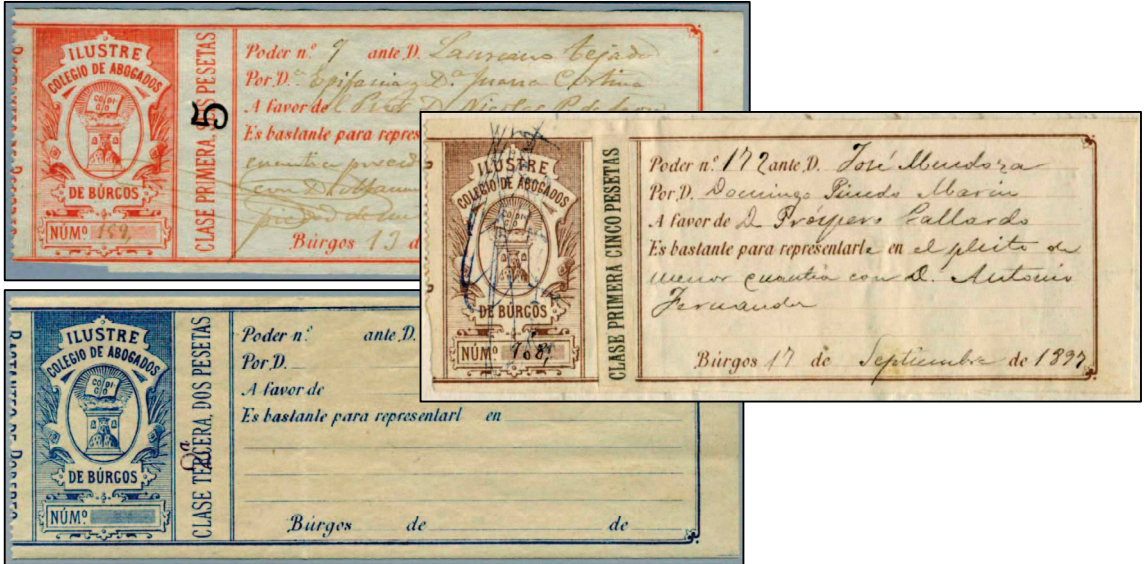 ILUSTRE
COLEGIO DE ABOGADOS
CO DI
CI O
DE BÚRGOS
NÚMº 159,
CLASE PRIMERA, DOS PESETAS
5
Poder n.º 9 ante D. Laureano Tejada
Por D.ª Epifania y D.ª Juana Cortina
A favor de D. Nicolas P. de
Es bastante para repres
cuantia
con D.
Búrgos 13 d
ILUSTRE
COLEGIO DE ABOGADOS
CO DI
CI O
DE BÚRGOS
NÚMº 168,
CLASE PRIMERA CINCO PESETAS
Poder n.º 172 ante D. José Mendoza
Por D. Domingo Pineda Marin
A favor de D. Próspero Gallardo
Es bastante para representarle en el pleito de
menor cuantia con D. Antonio
Fernandez
Búrgos 17 de Septiembre de 1897
BASTANTEO DE PODERES
ILUSTRE
COLEGIO DE ABOGADOS
CO DI
CI O
DE BÚRGOS
NÚMº
CLASE TERCERA, DOS PESETAS
Poder n.º ante D.
Por D.
A favor de
Es bastante para representarl en
Búrgos de de